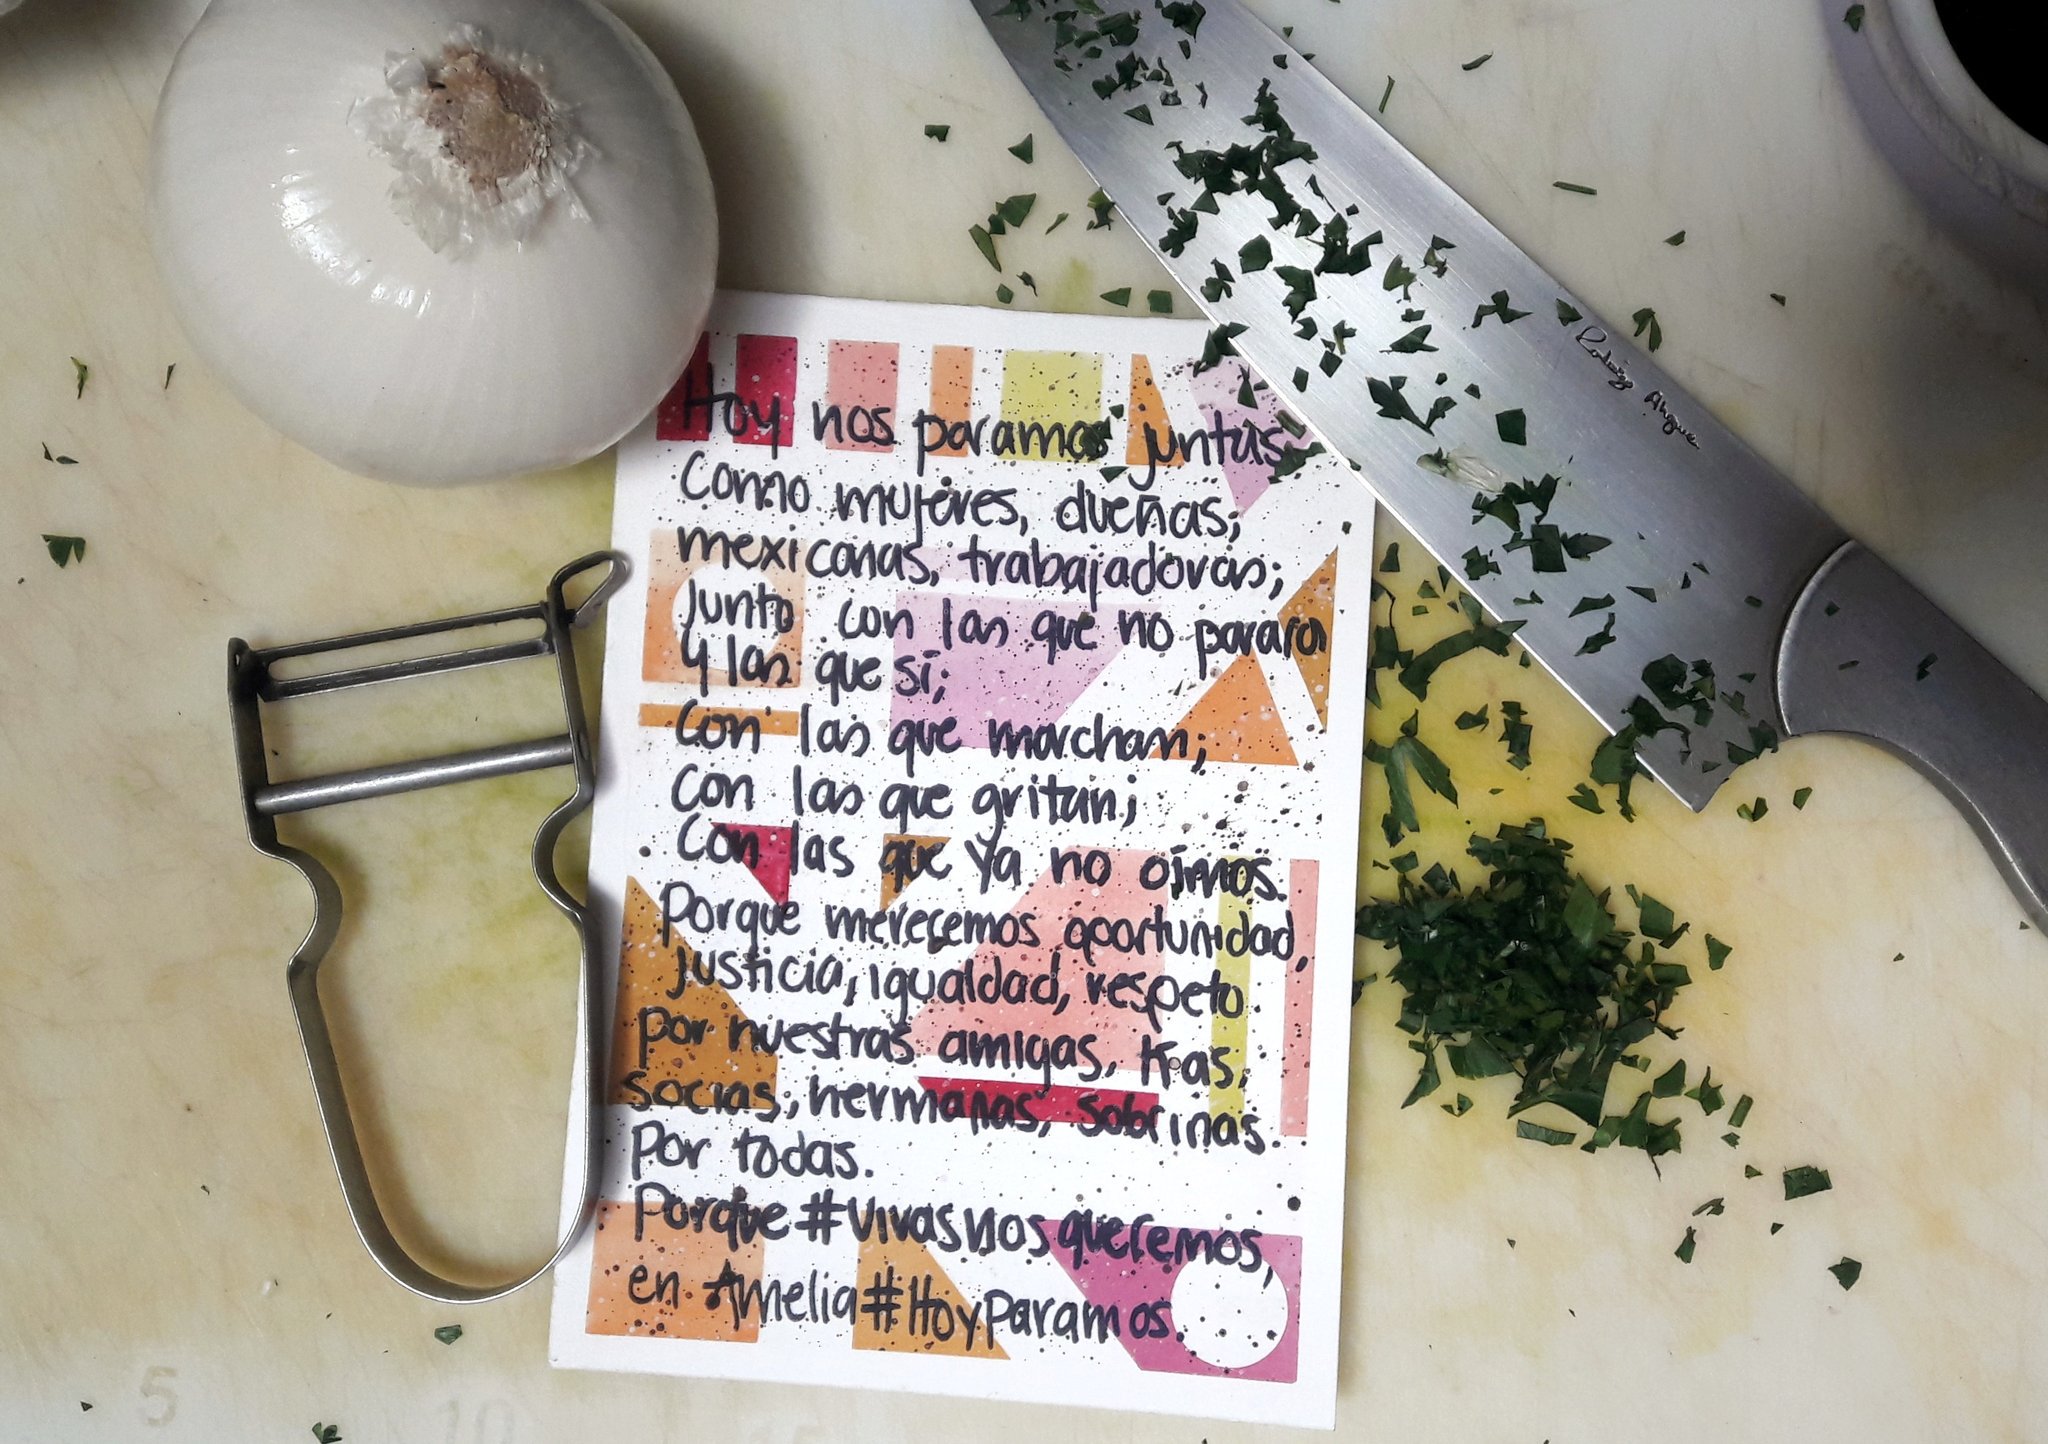 Hoy nos paramos juntas
Como mujeres, dueñas,
mexicanas, trabajadoras;
Junto con las que no pararon
y las que sí;
con las que marchan;
con las que gritan;
Con las que ya no oímos.
Porque merecemos oportunidad,
justicia, igualdad, respeto
por nuestras amigas, tías,
socias, hermanas, sobrinas.
Por todas.
Porque #vivasnosqueremos,
en Amelia #HoyParamos.
5
10